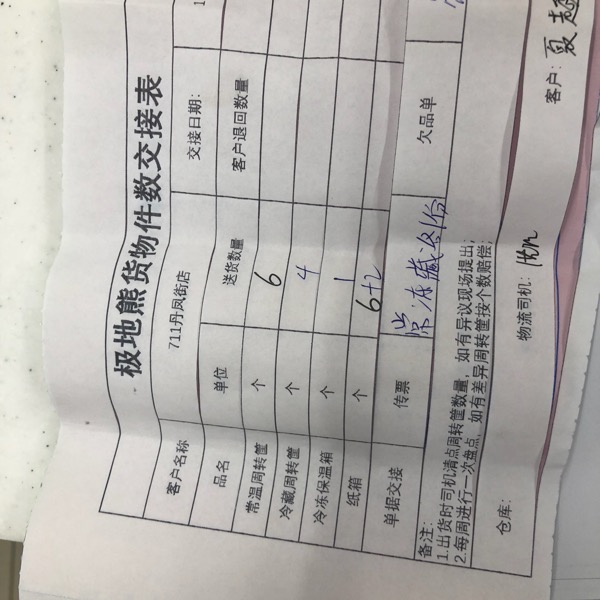 极地熊货物件数交接表
客户名称 711丹凤街店 交接日期: 1
品名 单位 送货数量 客户退回数量
常温周转筐 个 6
冷藏周转筐 个 4
冷冻保温箱 个 1
纸箱 个 6+2
单据交接 传票 常冻藏 各1份 欠品单
备注:
1.出货时司机清点周转筐数量,如有异议现场提出;
2.每周进行一次盘点,如有差异周转筐按个数赔偿;
仓库: 物流司机: 客户: 夏